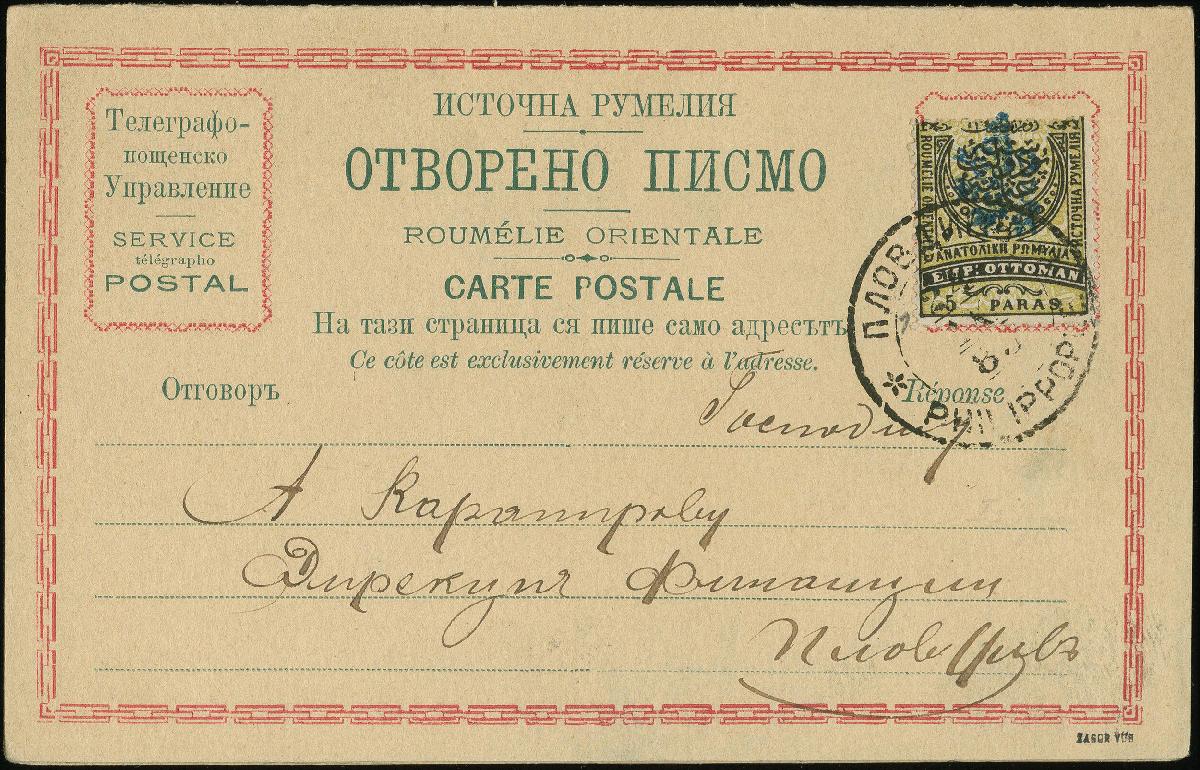 Телеграфо-
пощенско
Управление
SERVICE
télégrapho
POSTAL
ИСТОЧНА РУМЕЛИЯ
ОТВОРЕНО ПИСМО
ROUMÉLIE ORIENTALE
CARTE POSTALE
На тази страница ся пише само адресътъ
Ce côte est exclusivement réserve à l'adresse.
Отговоръ
Réponse
ROUMELIE
ИСТОЧНА РУМЕЛІЯ
ΑΝΑΤΟΛΙΚΗ ΡΩΜΥΛΙΑ
EMPR: OTTOMAN
5 PARAS
ПЛОВ
PHILIPPOP
Господину
А Каратирову
Дирекция Финанции
Пловдивъ